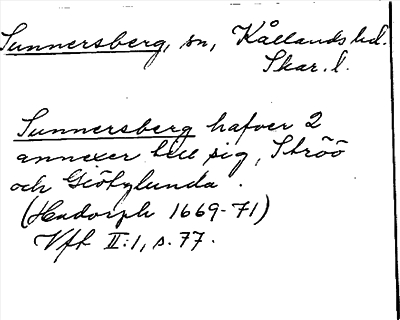 Sunnersberg, sn, Kållands hd.
Skar. l.
Sunnersberg hafver 2
annexer till sig, Ströö
och Giötzlunda.
(Hadorph 1669-71)
Vft II:1, s. 77.